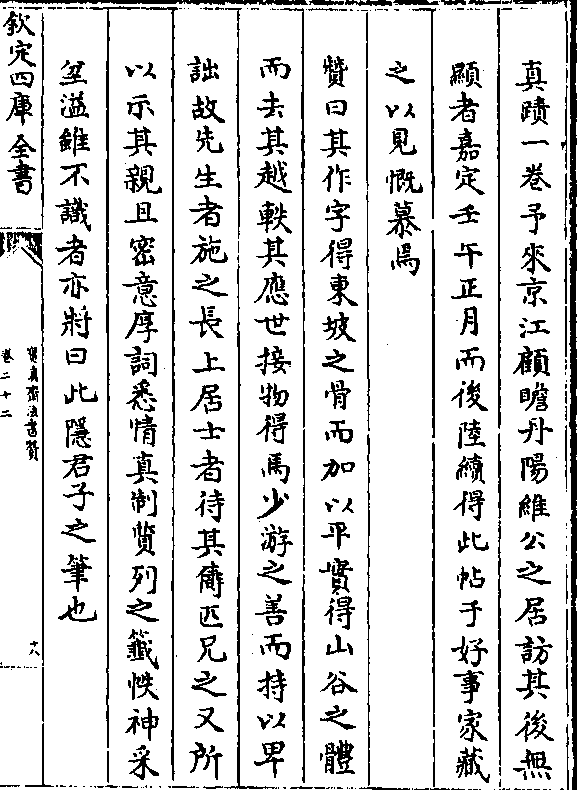 真蹟一卷予來京江顧瞻丹陽維公之居訪其後無
顯者嘉定壬午正月而後陸續得此帖于好事家藏
之以見慨慕焉
贊曰其作字得東坡之骨而加以平實得山谷之體
而去其越軼其應世接物得馬少游之善而持以卑
詘故先生者施之長上居士者待其儔匹兄之又所
以示其親且密意厚詞悉情真制質列之籤帙神采
坌溢雖不識者亦將曰此隱君子之筆也
欽定四庫全書
寶真齋法書贊
卷二十二
十八